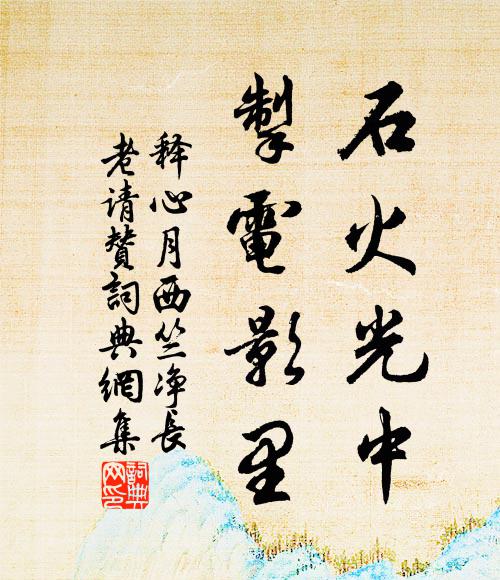 石火光中
掣電影里
释心月西竺净長
老请贊詞典網集
詞典网印